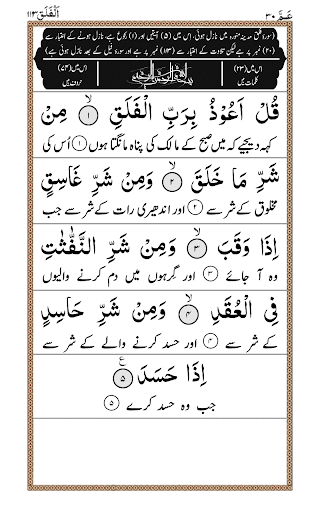 اَلْفَلَق ١١٣ عَـمَّ ٣٠
(سورہ فلق مدینہ منورہ میں نازل ہوئی، اس میں (۵) آیتیں اور (۱) رکوع ہے، نازل ہونے کے اعتبار سے
(۲۰) نمبر پر ہے لیکن تلاوت کے اعتبار سے (۱۱۳) نمبر پر ہے اور سورۂ فیل کے بعد نازل ہوئی ہے)
اس میں (۲۳) بِسْمِ اللهِ الرَّحْمٰنِ الرَّحِيْمِ اس میں
کلمات ہیں حروف ہیں
قُلْ اَعُوْذُ بِرَبِّ الْفَلَقِ ۙ‏﴿۱﴾ مِنْ
کہہ دیجیے کہ میں صبح کے مالک کی پناہ مانگتا ہوں ۱ اُس کی
شَرِّ مَا خَلَقَ ۙ‏﴿۲﴾ وَمِنْ شَرِّ غَاسِقٍ
مخلوق کے شر سے ۲ اور اندھیری رات کے شر سے جب
اِذَا وَقَبَ ۙ‏﴿۳﴾ وَمِنْ شَرِّ النَّفّٰثٰتِ
وہ آ جائے ۳ اور گِرہوں میں دم کرنے والیوں
فِى الْعُقَدِ ۙ‏﴿۴﴾ وَمِنْ شَرِّ حَاسِدٍ
کے شر سے ۴ اور حسد کرنے والے کے شر سے
اِذَا حَسَدَ ﴿۵﴾ ع
جب وہ حسد کرے ۵